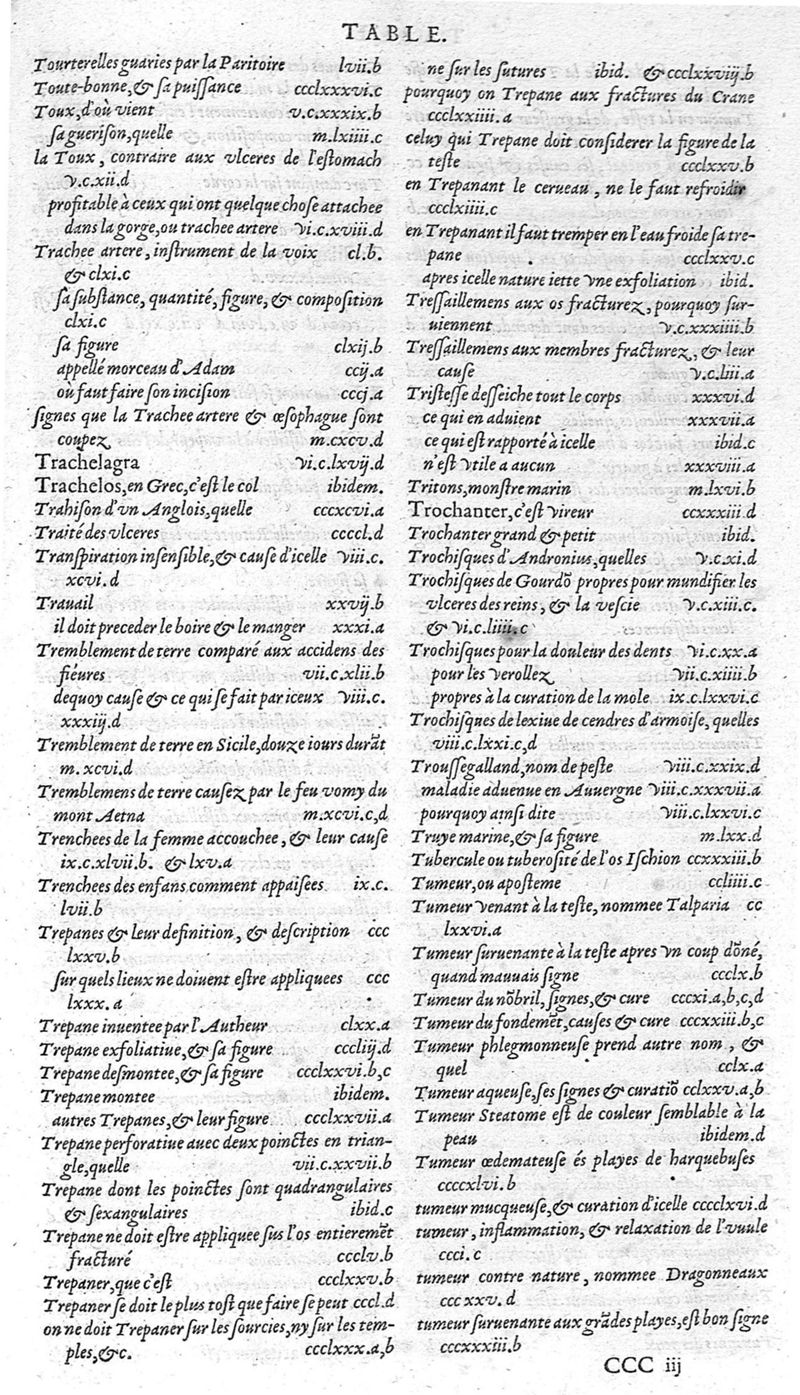 TABLE.
Tourterelles guaries par la Paritoire lvii.b
Toute-bonne, & sa puissance ccclxxxvi.c
Toux, d'où vient v.c.xxxix.b
sa guerison, quelle m.lxiiii.c
la Toux, contraire aux vlceres de l'estomach
v.c.xii.d
profitable à ceux qui ont quelque chose attachee
dans la gorge, ou trachee artere vi.c.xviii.d
Trachee artere, instrument de la voix cl.b.
& clxi.c
sa substance, quantité, figure, & composition
clxi.c
sa figure clxij.b
appellé morceau d'Adam ccij.a
où faut faire son incision cccj.a
signes que la Trachee artere & œsophague sont
coupez m.cxcv.d
Trachelagra vi.c.lxvij.d
Trachelos, en Grec, c'est le col ibidem.
Trahison d'vn Anglois, quelle cccxcvi.a
Traité des vlceres ccccl.d
Transpiration insensible, & cause d'icelle viii.c.
xcvi.d
Trauail xxvij.b
il doit preceder le boire & le manger xxxi.a
Tremblement de terre comparé aux accidens des
fiéures vii.c.xlii.b
dequoy cause & ce qui se fait par iceux viii.c.
xxxiij.d
Tremblement de terre en Sicile, douze iours durāt
m.xcvi.d
Tremblemens de terre causez par le feu vomy du
mont Aetna m.xcvi.c,d
Trenchees de la femme accouchee, & leur cause
ix.c.xlvii.b. & lxv.a
Trenchees des enfans comment appaisees ix.c.
lvii.b
Trepanes & leur definition, & description ccc
lxxv.b
sur quels lieux ne doiuent estre appliquees ccc
lxxx.a
Trepane inuentee par l'Autheur clxx.a
Trepane exfoliatiue, & sa figure cccliij.d
Trepane desmontee, & sa figure ccclxxvi.b,c
Trepane montee ibidem.
autres Trepanes, & leur figure ccclxxvii.a
Trepane perforatiue auec deux poinctes en trian-
gle, quelle vii.c.xxvii.b
Trepane dont les poinctes sont quadrangulaires
& sexangulaires ibid.c
Trepane ne doit estre appliquee sus l'os entieremēt
fracturé ccclv.b
Trepaner, que c'est ccclxxv.b
Trepaner se doit le plus tost que faire se peut cccl.d
on ne doit Trepaner sur les sourcies, ny sur les tem-
ples, &c. ccclxxx.a,b
ne sur les sutures ibid. & ccclxxviij.b
pourquoy on Trepane aux fractures du Crane
ccclxxiiii.a
celuy qui Trepane doit considerer la figure de la
teste ccclxxv.b
en Trepanant le cerueau, ne le faut refroidir
ccclxiiii.c
en Trepanant il faut tremper en l'eau froide sa tre-
pane ccclxxv.c
apres icelle nature iette vne exfoliation ibid.
Tressaillemens aux os fracturez, pourquoy sur-
uiennent v.c.xxxiiii.b
Tressaillemens aux membres fracturez, & leur
cause v.c.liii.a
Tristesse desseiche tout le corps xxxvi.d
ce qui en aduient xxxvii.a
ce qui est rapporté à icelle ibid.c
n'est vtile a aucun xxxviii.a
Tritons, monstre marin m.lxvi.b
Trochanter, c'est vireur ccxxxiii.d
Trochanter grand & petit ibid.
Trochisques d'Andronius, quelles v.c.xi.d
Trochisques de Gourdō propres pour mundifier les
vlceres des reins, & la vescie v.c.xiii.c.
& vi.c.liiii.c
Trochisques pour la douleur des dents vi.c.xx.a
pour les verollez vii.c.xiiii.b
propres à la curation de la mole ix.c.lxxvi.c
Trochisques de lexiue de cendres d'armoise, quelles
viii.c.lxxi.c,d
Troussegalland, nom de peste viii.c.xxix.d
maladie aduenue en Auuergne viii.c.xxxvii.a
pourquoy ainsi dite viii.c.lxxvi.c
Truye marine, & sa figure m.lxx.d
Tubercule ou tuberosité de l'os Ischion ccxxxiii.b
Tumeur, ou aposteme ccliiii.c
Tumeur venant à la teste, nommee Talparia cc
lxxvi.a
Tumeur suruenante à la teste apres vn coup dōné,
quand mauuais signe ccclx.b
Tumeur du nōbril, signes, & cure cccxi.a,b,c,d
Tumeur du fondemēt, causes & cure cccxxiii.b,c
Tumeur phlegmonneuse prend autre nom, &
quel cclx.a
Tumeur aqueuse, ses signes & curatiō cclxxv.a,b
Tumeur Steatome est de couleur semblable à la
peau ibidem.d
Tumeur œdemateuse és playes de harquebuses
ccccxlvi.b
tumeur mucqueuse, & curation d'icelle cccclxvi.d
tumeur, inflammation, & relaxation de l'vuule
ccci.c
tumeur contre nature, nommee Dragonneaux
cccxxv.d
tumeur suruenante aux grādes playes, est bon signe
cccxxxiii.b
CCC iij